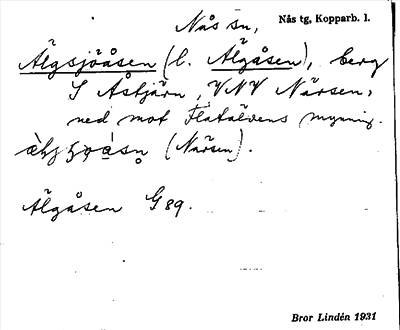 Nås sn, Nås tg, Kopparb. l.
Älgsjöåsen (l. Älgåsen), berg
S Åstjärn, VNV Närsen,
ned mot Flatälvens mynning.
(Närsen).
Älgåsen G89.
Bror Lindén 1931